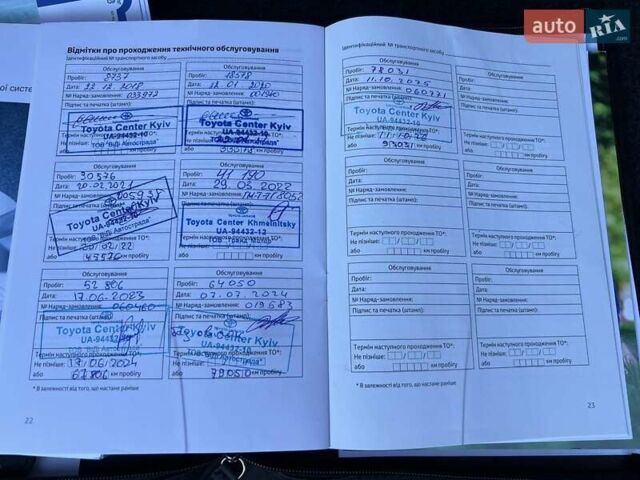 auto RIA.com
Відмітки про проходження технічного обслуговування
Ідентифікаційний № транспортного засобу
Обслуговування
Пробіг: 8737
Дата: 22 12 2018
№ Наряд-замовлення: 033972
Підпис та печатка (штамп):
Toyota Center Kyiv
UA-94432-10
ТОВ "ВіДі Автострада"
Термін наступного проходження ТО*:
Не пізніше:
або км пробігу
Обслуговування
Пробіг: 18578
Дата: 12 01 2020
№ Наряд-замовлення:
Підпис та печатка (штамп):
Toyota Center Kyiv
UA-94432-10
ТОВ "ВіДі Автострада"
або км пробігу
Обслуговування
Пробіг: 30576
Дата: 20.02.2021
№ Наряд-замовлення: 005938
Підпис та печатка (штамп):
Toyota Center Kyiv
UA-94432-10
ТОВ "ВіДі Автострада"
Термін наступного проходження ТО*:
Не пізніше:
або 45576 км пробігу
Обслуговування
Пробіг: 41 190
Дата: 29.03.2022
№ Наряд-замовлення:
Підпис та печатка (штамп):
Toyota Center Khmelnitsky
UA-94432-12
ТОВ "Гранд Мотор"
Термін наступного проходження ТО*:
Не пізніше:
або км пробігу
Обслуговування
Пробіг: 52 806
Дата: 17.06.2023
№ Наряд-замовлення: 060460
Підпис та печатка (штамп):
Toyota Center Kyiv
UA-94432-10
Термін наступного проходження ТО*:
Не пізніше: 17/06/2024
або 67806 км пробігу
Обслуговування
Пробіг: 64050
Дата: 07.07.2024
№ Наряд-замовлення: 019683
Підпис та печатка (штамп):
Toyota Center Kyiv
UA-94432-10
Не пізніше:
або 79050 км пробігу
* В залежності від того, що настане раніше
22
Ідентифікаційний № транспортного засобу
Обслуговування
Пробіг: 78031
Дата: 11.10.2025
№ Наряд-замовлення: 060271
Підпис та печатка (штамп):
Toyota Center Kyiv
UA-94432-10
Термін наступного проходження ТО*:
Не пізніше: 11.10.26
або 93031 км пробігу
Обслуговування
Пробіг:
Дата:
№ Наряд-замовлення:
Підпис та печатка (штамп):
Термін наступного проходження ТО*:
Не пізніше: / /
або км пробігу
Обслуговування
Пробіг:
Дата:
№ Наряд-замовлення:
Підпис та печатка (штамп):
Термін наступного проходження ТО*:
Не пізніше: / /
або км пробігу
Обслуговування
Пробіг:
Дата:
№ Наряд-замовлення:
Підпис та печатка (штамп):
Термін наступного проходження ТО*:
Не пізніше: / /
або км пробігу
Обслуговування
Пробіг:
Дата:
№ Наряд-замовлення:
Підпис та печатка (штамп):
Термін наступного проходження ТО*:
Не пізніше: / /
або км пробігу
Обслуговування
Пробіг:
Дата:
№ Наряд-замовлення:
Підпис та печатка (штамп):
Термін наступного проходження ТО*:
Не пізніше: / /
або км пробігу
* В залежності від того, що настане раніше
23